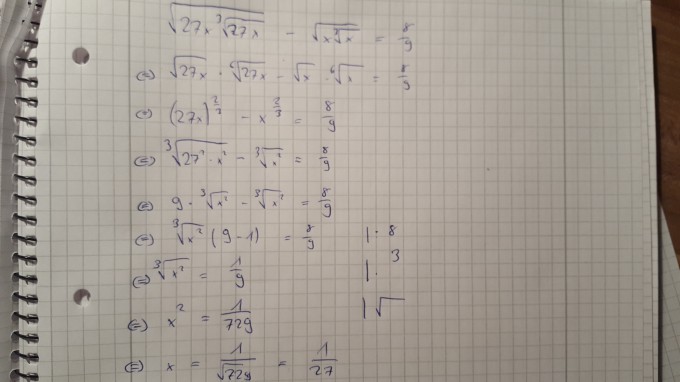 √(27x ∛(27x)) − √(x ∛x) = 8/9
(=) √27x · ⁶√27x − √x · ⁶√x = 8/9
(=) (27x)^(2/3) − x^(2/3) = 8/9
(=) ∛(27² · x²) − ∛(x²) = 8/9
(=) 9 · ∛(x²) − ∛(x²) = 8/9
(=) ∛(x²) (9 − 1) = 8/9 | : 8
(=) ∛(x²) = 1/9 | · ³
(=) x² = 1/729 | √
(=) x = 1/√729 = 1/27